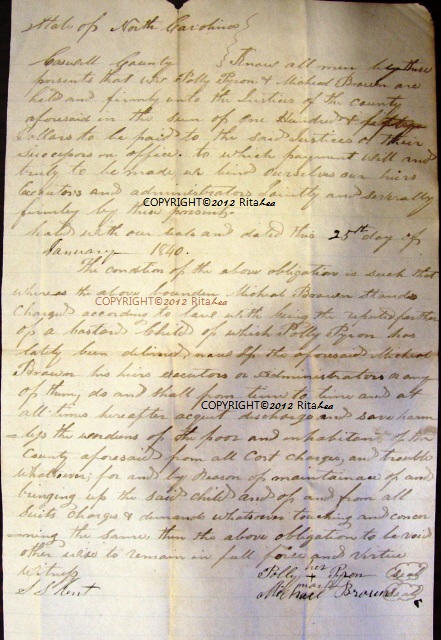 State of North Carolina
Caswell County } Know all men by these
presents that we Polly Pyron & Micheal Brown are
held and firmly unto the Justices of the County
aforesaid in the Sum of One Hundred &
dollars to be paid to the said Justices or their
Successors on office. to which payment well and
truly to be made, we bind ourselves our heirs
Executors and administrators Jointly and severally
firmly by these presents.
COPYRIGHT©2012 RitaLea
Seald with our seals and dated this 25th day of
January 1840.
The condition of the above obligation is such that
whereas the above bounden Micheal Brown Stands
COPYRIGHT©2012 RitaLea
Charged according to law with being the reputed father
of a bastard Child of which Polly Pyron has
lately been delivered now if the aforesaid Micheal
Brown his heirs executors or Administrators or any
of them, do and shall from time to time and at
COPYRIGHT©2012 RitaLea
all times hereafter acquit discharge and save harm
-less the wardens of the poor and inhabitants of the
County aforesaid from all Cost Charges, and trouble
whatsoever, for and by Reason of maintainace of and
bringing up the said Child and of, and from all
Suits Charges & demands whatsoever touching and concer
-ning the same, then the above obligation to be void
other wise to remain in full force and virtue
Witness
S S Kent
Polly her + mark Pyron (Seal)
Micheal Brown (Seal)